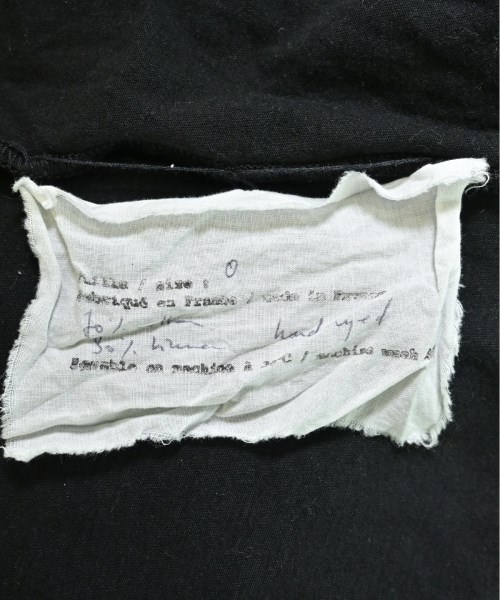 taille / size : 0
Fabriqué en France / made in France
70%
30% hand dyed
lavable en machine à 30°C / machine wash